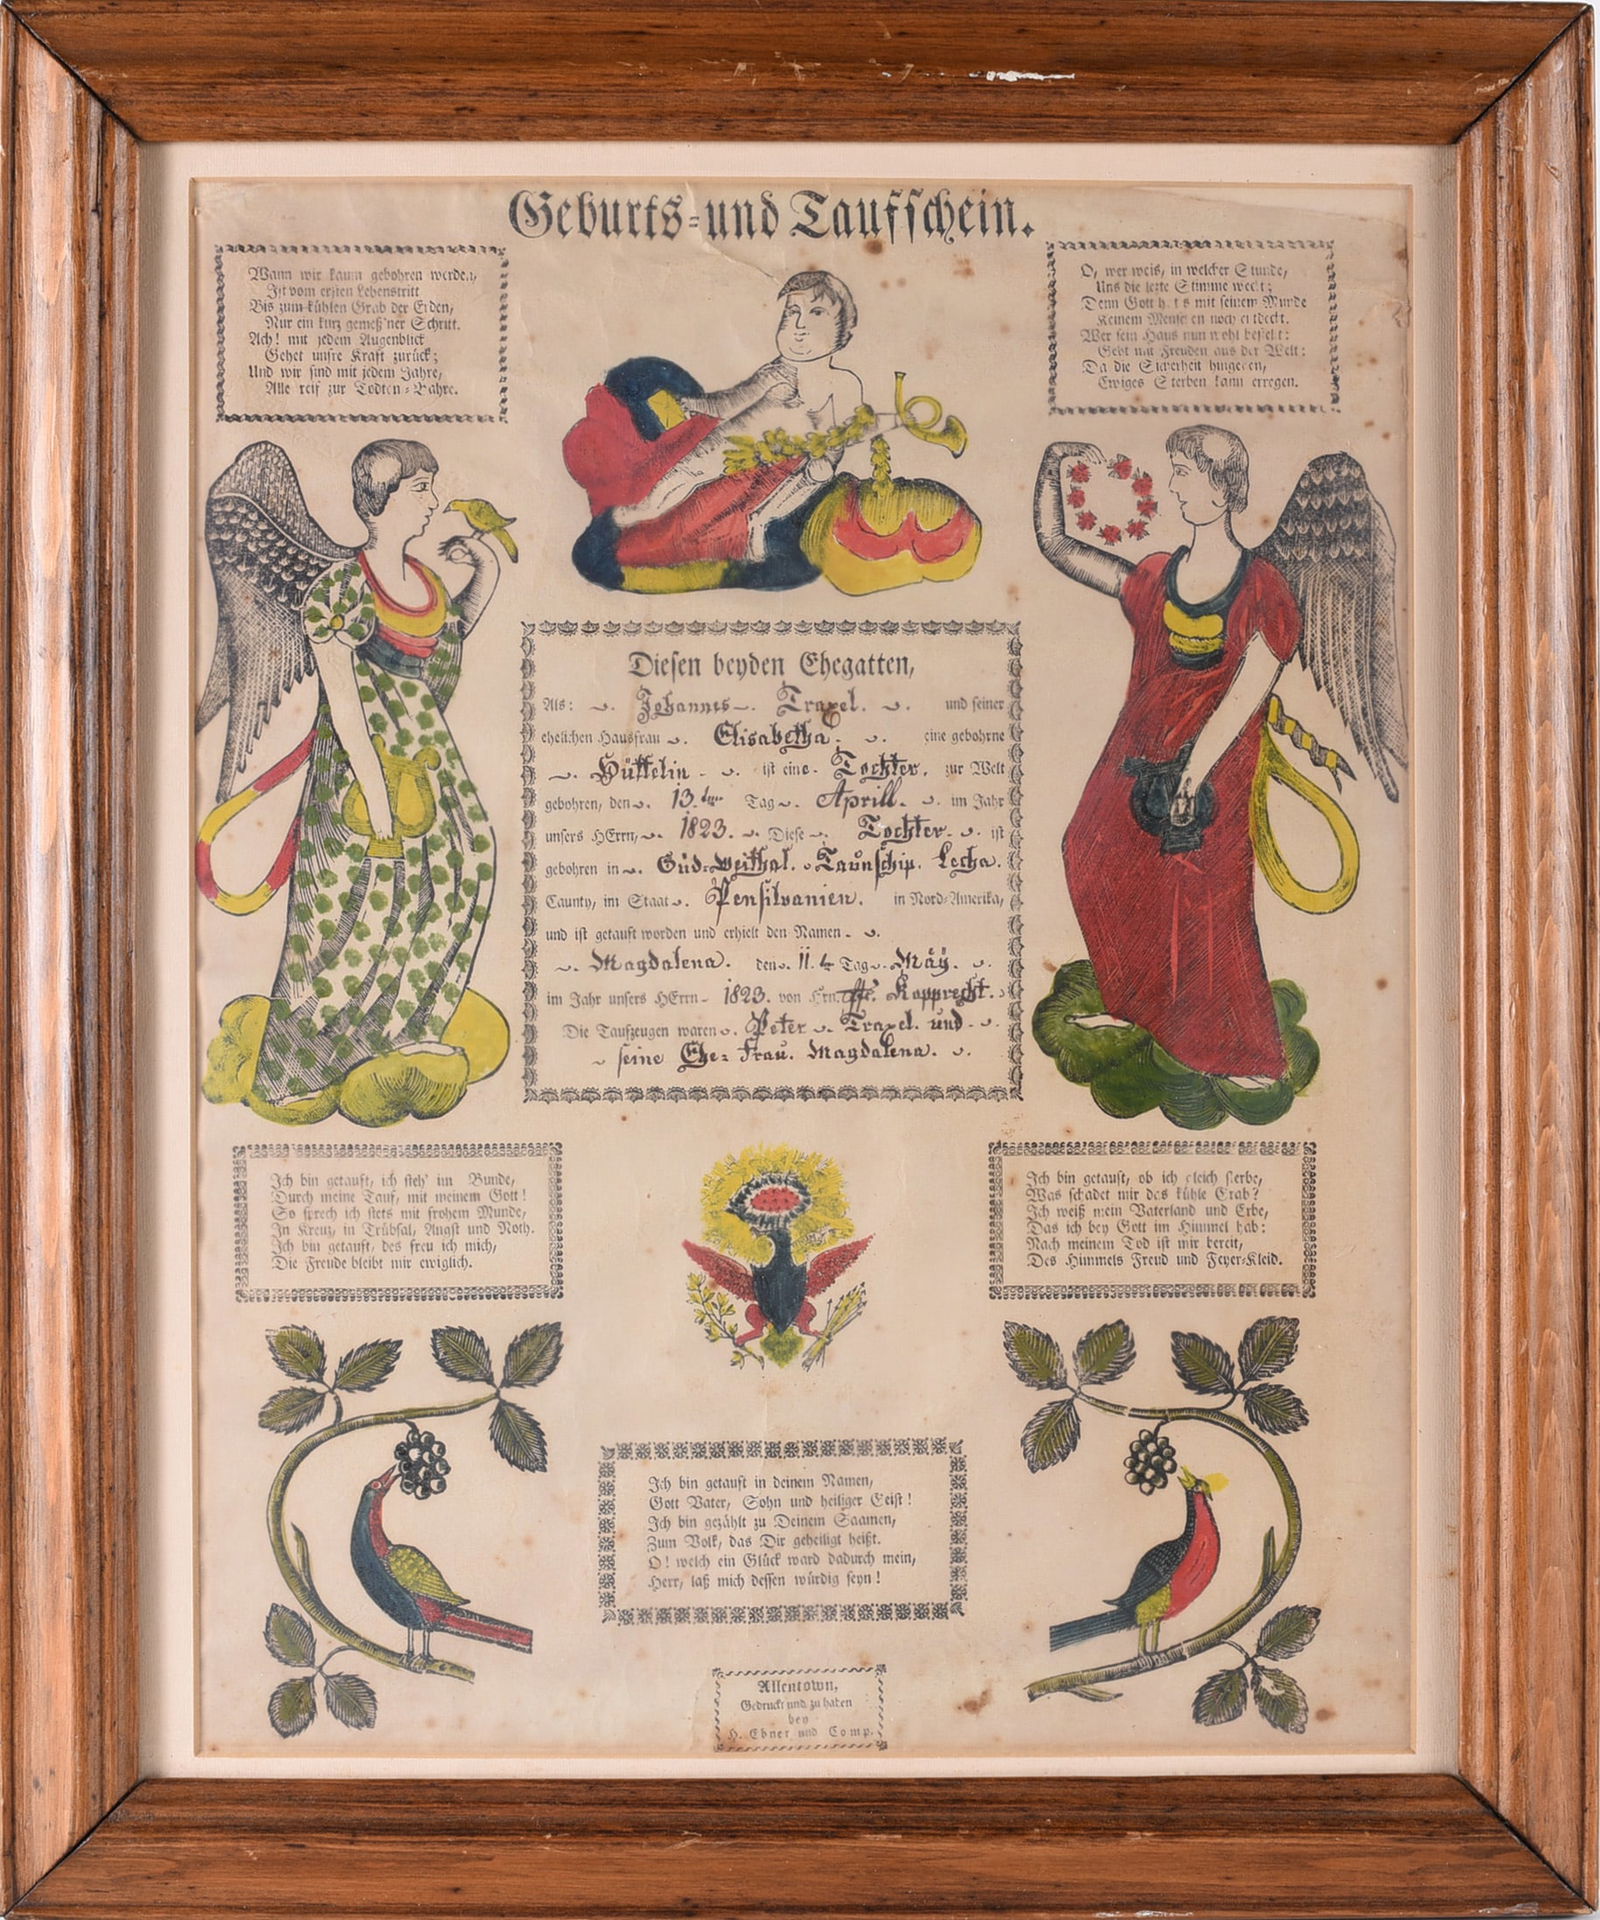 Geburts-und Taufschein.
Wann wir kaum gebohren werden,
Ist vom ersten Lebenstritt
Bis zum kühlen Grab der Erden,
Nur ein kurz gemeß'ner Schritt.
Ach! mit jedem Augenblick
Gehet unsre Kraft zurück;
Und wir sind mit jedem Jahre,
Alle reif zur Todten-Bahre.
O, wer weis, in welcher Stunde,
Uns die letzte Stimme weckt;
Denn Gott mit seinem Munde
Keinem Menschen noch entdeckt.
Wer sein Haus nun wohl bestellt:
Geht mit Freuden aus der Welt:
Da die Sicherheit hingegen,
Ewiges Sterben kann erregen.
Diesen beyden Ehegatten,
Als: Johannes Traxel. und seiner
ehelichen Hausfrau Elisabetha. eine gebohrne
ist eine Tochter. zur Welt
gebohren, den 13. Tag Aprill. im Jahr
unsers HErrn, 1823. Diese Tochter ist
gebohren in Taunschip. Lecha.
Caunty, im Staat Pensilvanien. in Nord-Amerika,
und ist getauft worden und erhielt den Namen
Magdalena. den 11. Tag May.
im Jahr unsers HErrn 1823. von Hrn. Rapprecht.
Die Taufzeugen waren Peter Traxel. und
seine Ehe-Frau. Magdalena.
Ich bin getauft, ich steh' im Bunde,
Durch meine Tauf, mit meinem Gott!
So sprech ich stets mit frohem Munde,
In Kreuz, in Trübsal, Angst und Noth.
Ich bin getauft, des freu ich mich,
Die Freude bleibt mir ewiglich.
Ich bin getauft, ob ich gleich sterbe,
Was schadet mir das kühle Grab?
Ich weiß mein Vaterland und Erbe,
Das ich bey Gott im Himmel hab:
Nach meinem Tod ist mir bereit,
Des Himmels Freud und Feyer-Kleid.
Ich bin getauft in deinem Namen,
Gott Vater, Sohn und heiliger Geist!
Ich bin gezählt zu Deinem Saamen,
Zum Volk, das Dir geheiligt heißt.
O! welch ein Glück ward dadurch mein,
Herr, laß mich dessen würdig seyn!
Allentown,
Gedruckt und zu haben
bey
H. Ebner und Comp.